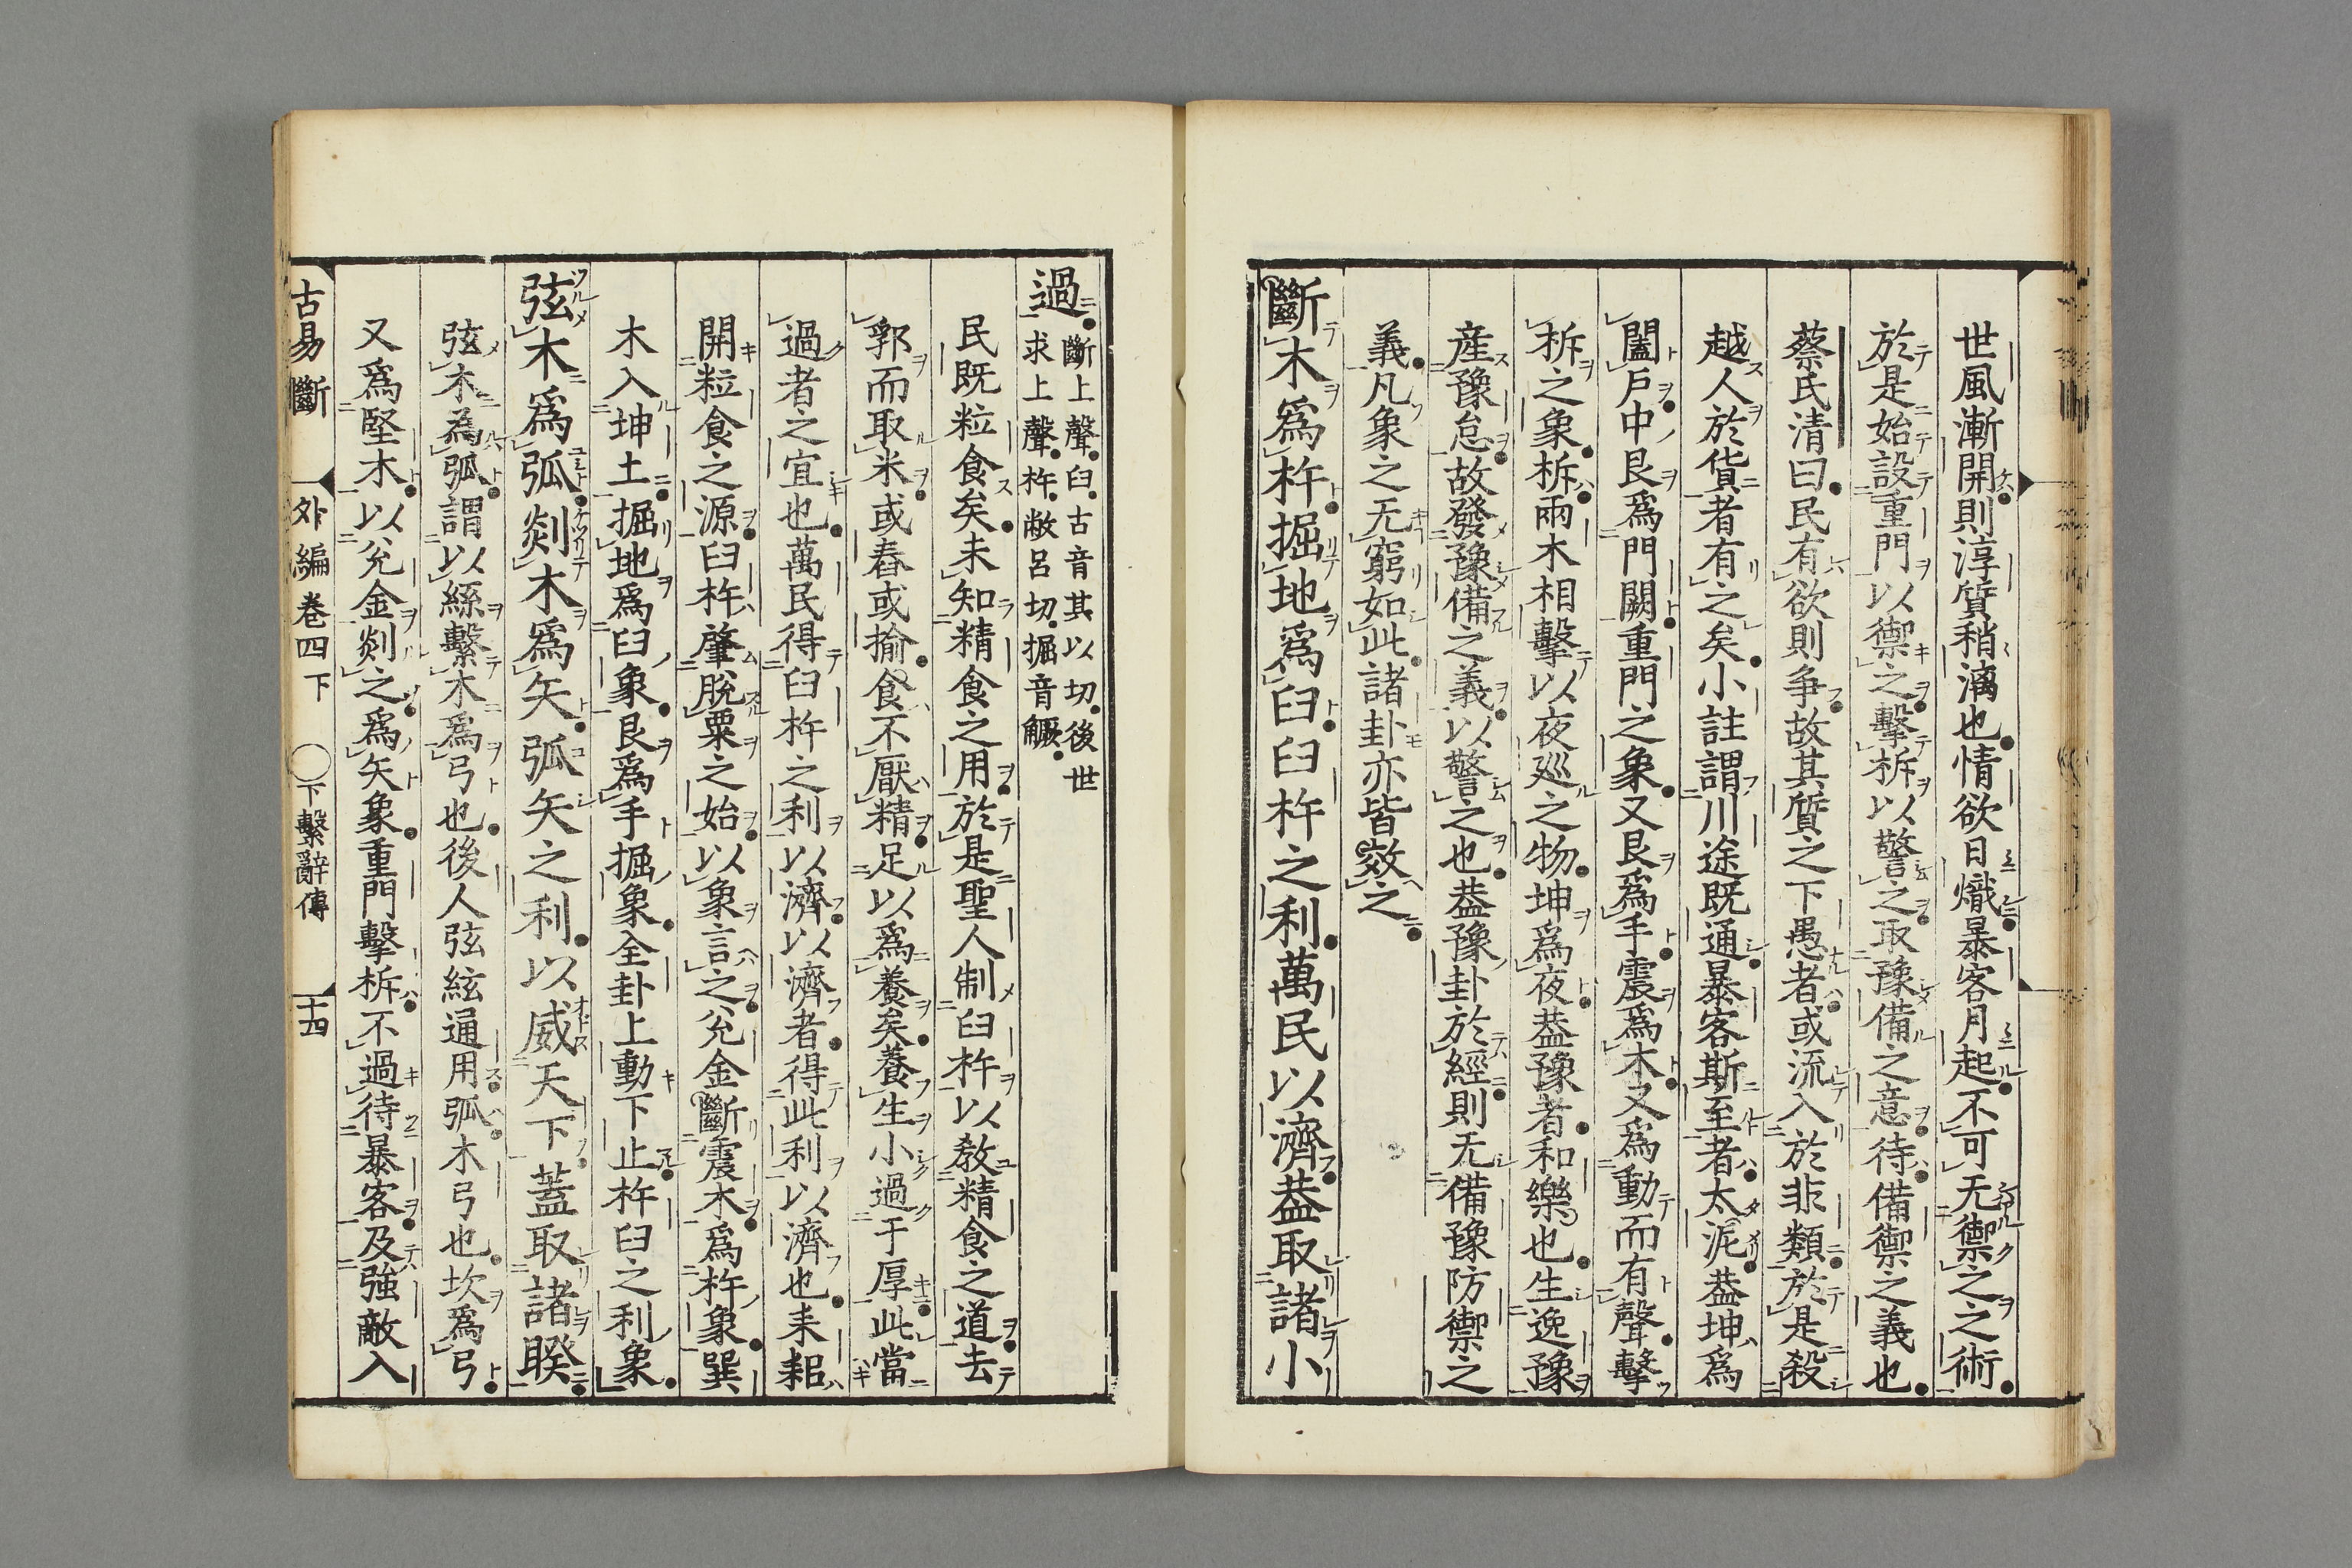 世風漸開則淳質稍漓也情欲日熾暴客月起不可无禦之之術
於是始設重門以禦之擊柝以警之取豫備之意待備禦之義也
蔡氏清曰民有欲則争故其質之下愚者或流入於非類於是殺
越人於貨者有之矣小註謂川途既通暴客斯至者太泥葢坤爲
闔戸中艮爲門闕重門之象又艮爲手震爲木又爲動而有聲擊
柝之象柝兩木相擊以夜廵之物坤爲夜葢豫者和樂也生逸豫
産豫怠故發豫備之義以警之也葢豫卦於經則无備豫防禦之
義凡象之无窮如此諸卦亦皆效之
斷木爲杵掘地爲臼臼杵之利萬民以濟葢取諸小
過斷上聲臼古音其以切後世
求上聲杵敝呂切掘音觖
民既粒食矣未知精食之用於是聖人制臼杵以教精食之道去
郭而取米或舂或揄食不厭精足以爲養矣養生小過于厚此當
過者之宜也萬民得臼杵之利以濟以濟者得此利以濟也耒耜
開粒食之源臼杵肇脫粟之始以象言之兊金斷震木爲杵象巽
木入坤土掘地爲臼象艮爲手掘象全卦上動下止杵臼之利象
弦木爲弧剡木爲矢弧矢之利以威天下蓋取諸睽
弦木為弧謂以絲繫木爲弓也後人弦絃通用弧木弓也坎爲弓
又爲堅木以兊金剡之爲矢象重門擊柝不過待暴客及強敵入
古易斷 外編卷四下 〇下繫辭傳 十四